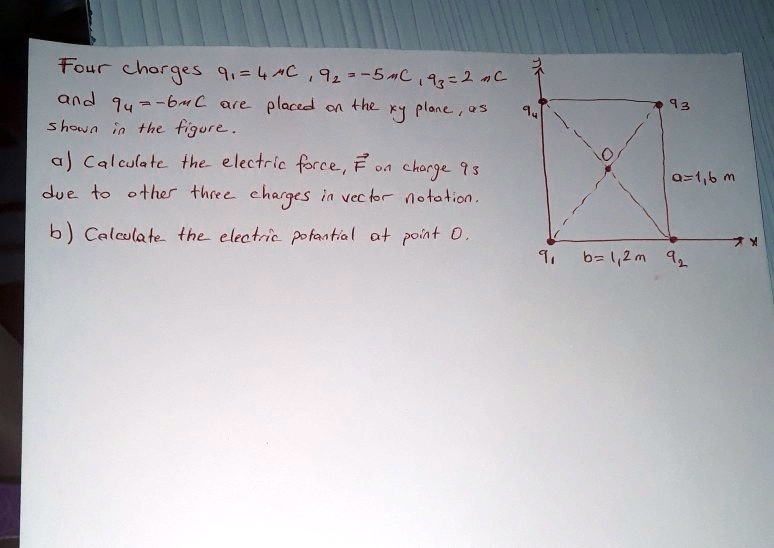 Four charges q₁ = 4 μC , q₂ = -5 μC , q₃ = 2 μC
and q₄ = -6 μC are placed on the xy plane, as
shown in the figure.
a) Calculate the electric force, F⃗ on charge q₃
due to other three charges in vector notation.
b) Calculate the electric potential at point O.
y
q₄
q₃
O
a=1,6 m
x
q₁
b= 1,2 m
q₂